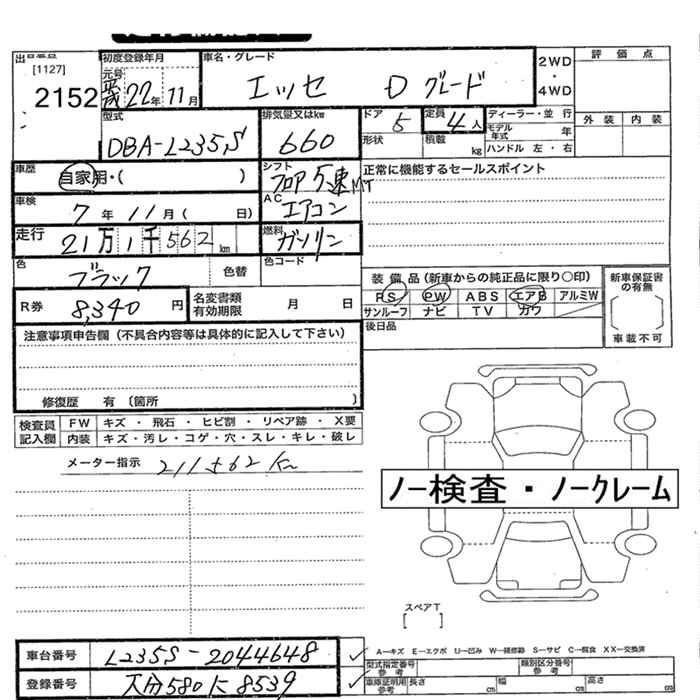 [1127]
2152
初度登録年月
元号
平 22年 11月
車名・グレード
エッセ D グレード
2WD
・
4WD
評 価 点
外 装 内 装
型式
DBA-L235S
排気量又はkw
660
ドア 5
形状
定員 4人
積載 kg
ディーラー・並 行
モデル年式 年
ハンドル 左・右
車歴
自家用・( )
シフト
フロア 5速MT
正常に機能するセールスポイント
車検
7 年 11 月 ( 日)
AC
エアコン
走行
21万1千562km
燃料
ガソリン
色
ブラック 色替
色コード
装 備 品 (新車からの純正品に限り○印)
RS PW ABS エアB アルミW
サンルーフ ナビ TV カワ
後日品
新車保証書の有無
車載不可
R券 8,340 円
名変書類有効期限 月 日
注意事項申告欄 (不具合内容等は具体的に記入して下さい)
修復歴 有 (箇所 )
検査員記入欄
FW キズ・飛石・ヒビ割・リペア跡・X要
内装 キズ・汚レ・コゲ・穴・スレ・キレ・破レ
メーター指示 211562 km
ノー検査・ノークレーム
スペアT
[ ]
車台番号 L235S-2044648
A—キズ E—エクボ U—凹み W—補修跡 S—サビ C—腐食 XX—交換済
型式指定番号 参考
類別区分番号 参考
登録番号 大分580に8539
車庫証明用 参考 長さ cm 幅 cm 高さ cm